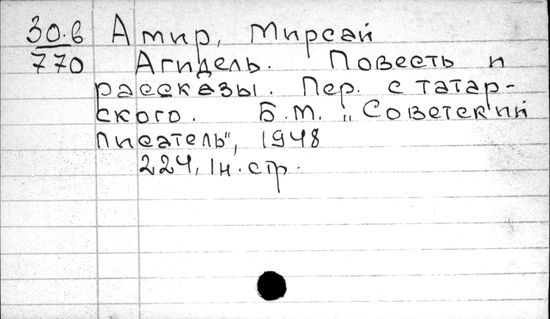 30.в Амир, Мирсай
770 Агидель. Повесть и
рассказы. Пер. с татар-
ского. Б.М. „Советский
писатель", 1948
224, 1н. стр.